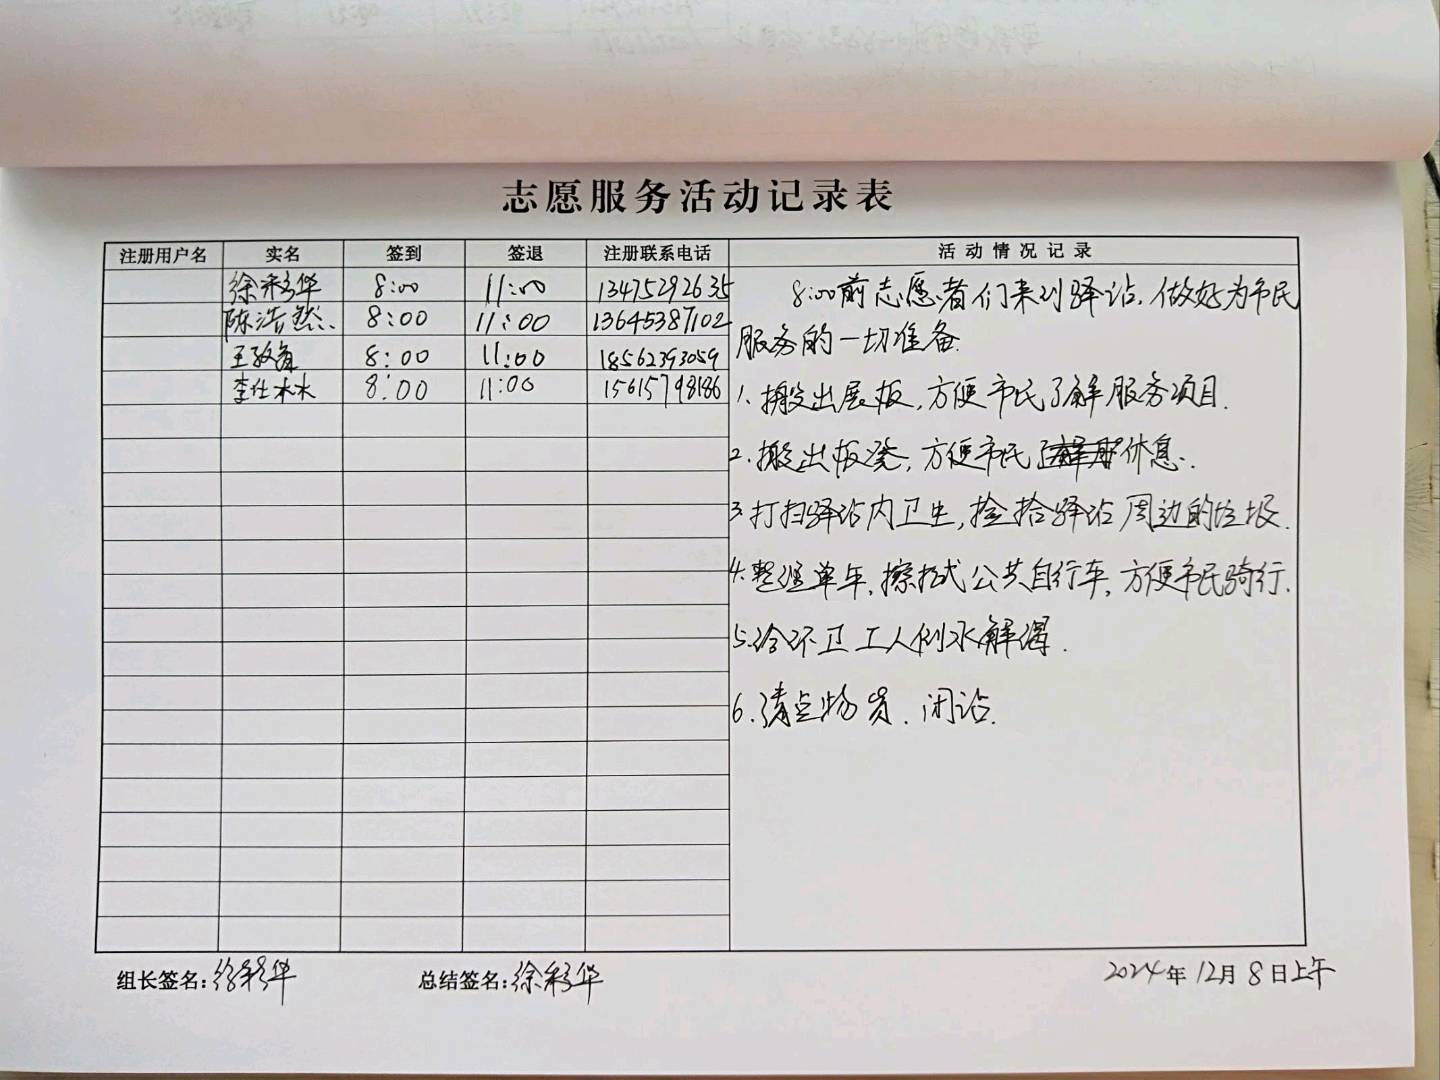 志愿服务活动记录表
注册用户名 实名 签到 签退 注册联系电话 活动情况记录
徐彩华 8:00 11:00 13475292635
陈浩然 8:00 11:00 13645387102
王敬 8:00 11:00 18562393059
李仕林 8:00 11:00 15615798186
8:00前志愿者们来到驿站,做好为市民
服务的一切准备.
1.搬出展板,方便市民了解服务项目.
2.搬出板凳,方便市民休息.
3.打扫驿站内卫生,捡拾驿站周边的垃圾.
4.整理单车,擦拭公共自行车,方便市民骑行.
5.给环卫工人倒水解渴.
6.清点物资、闭站.
组长签名:徐彩华 总结签名:徐彩华 2024年12月8日上午